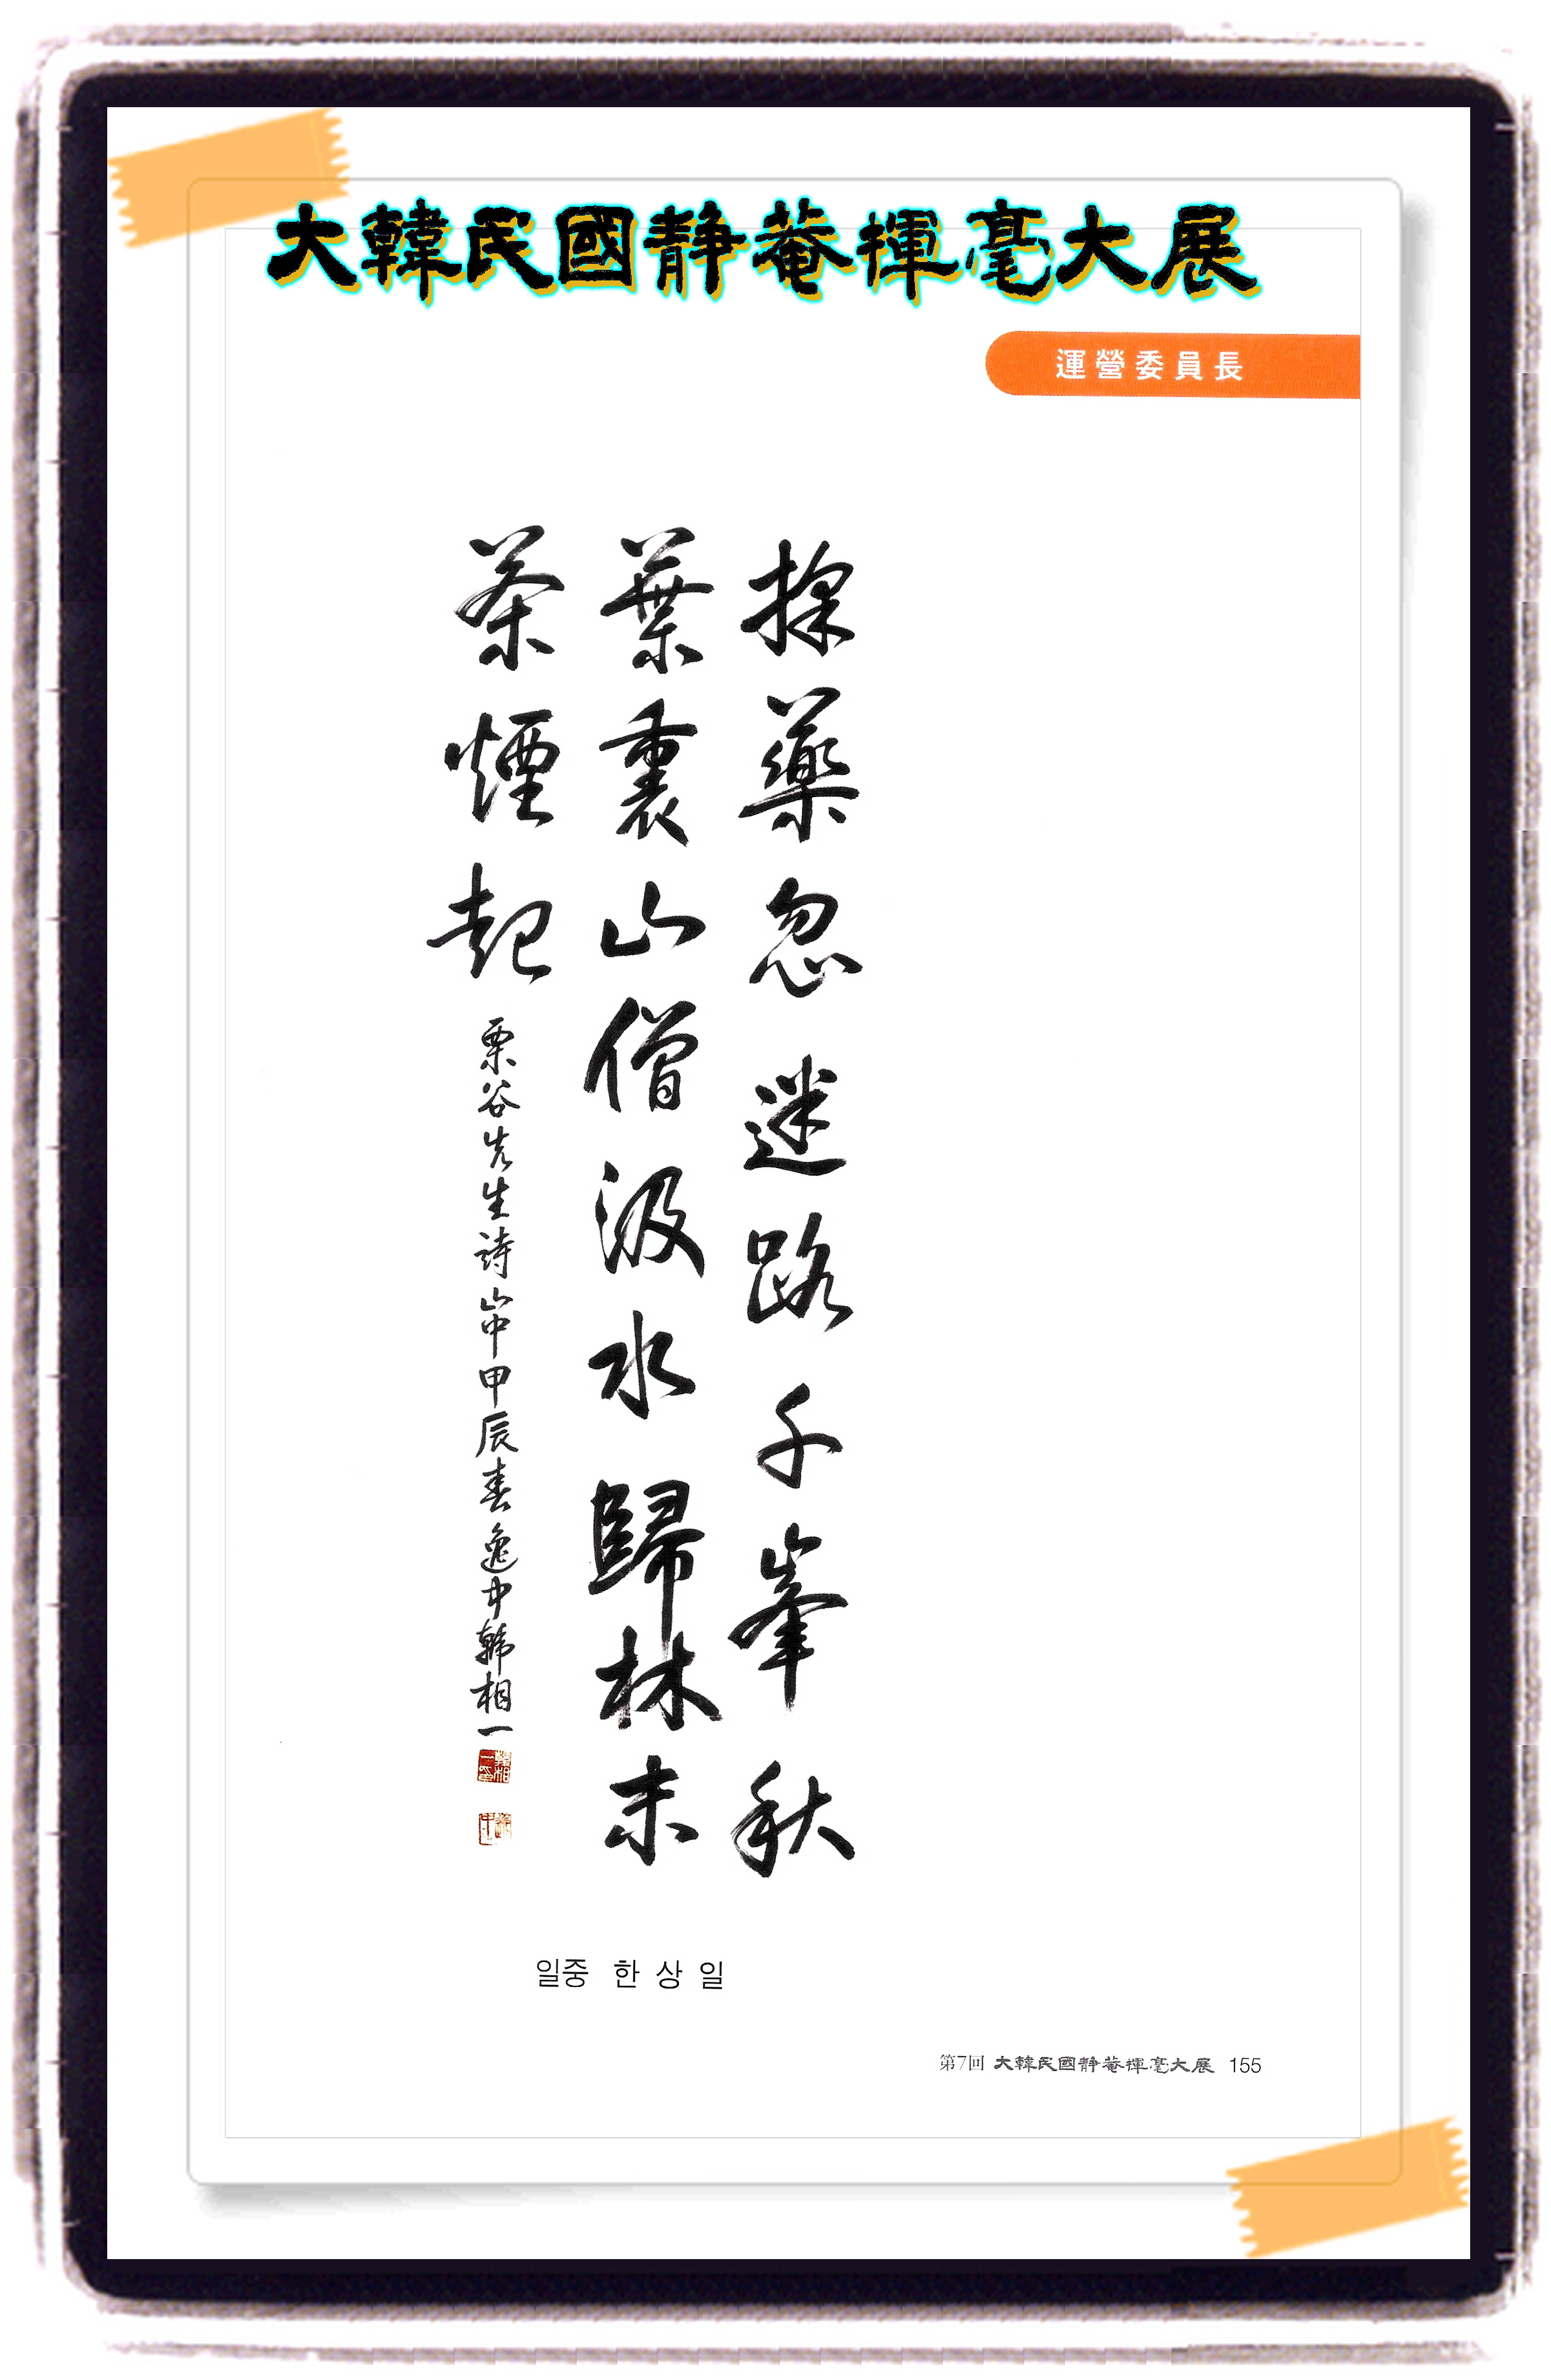 大韓民國静菴揮毫大展
運營委員長
採藥忽迷路千峯秋
葉裏山僧汲水歸林末
茶煙起
栗谷先生詩山中甲辰春逸中韓相一
일중 한상일
第7回 大韓民國静菴揮毫大展 155